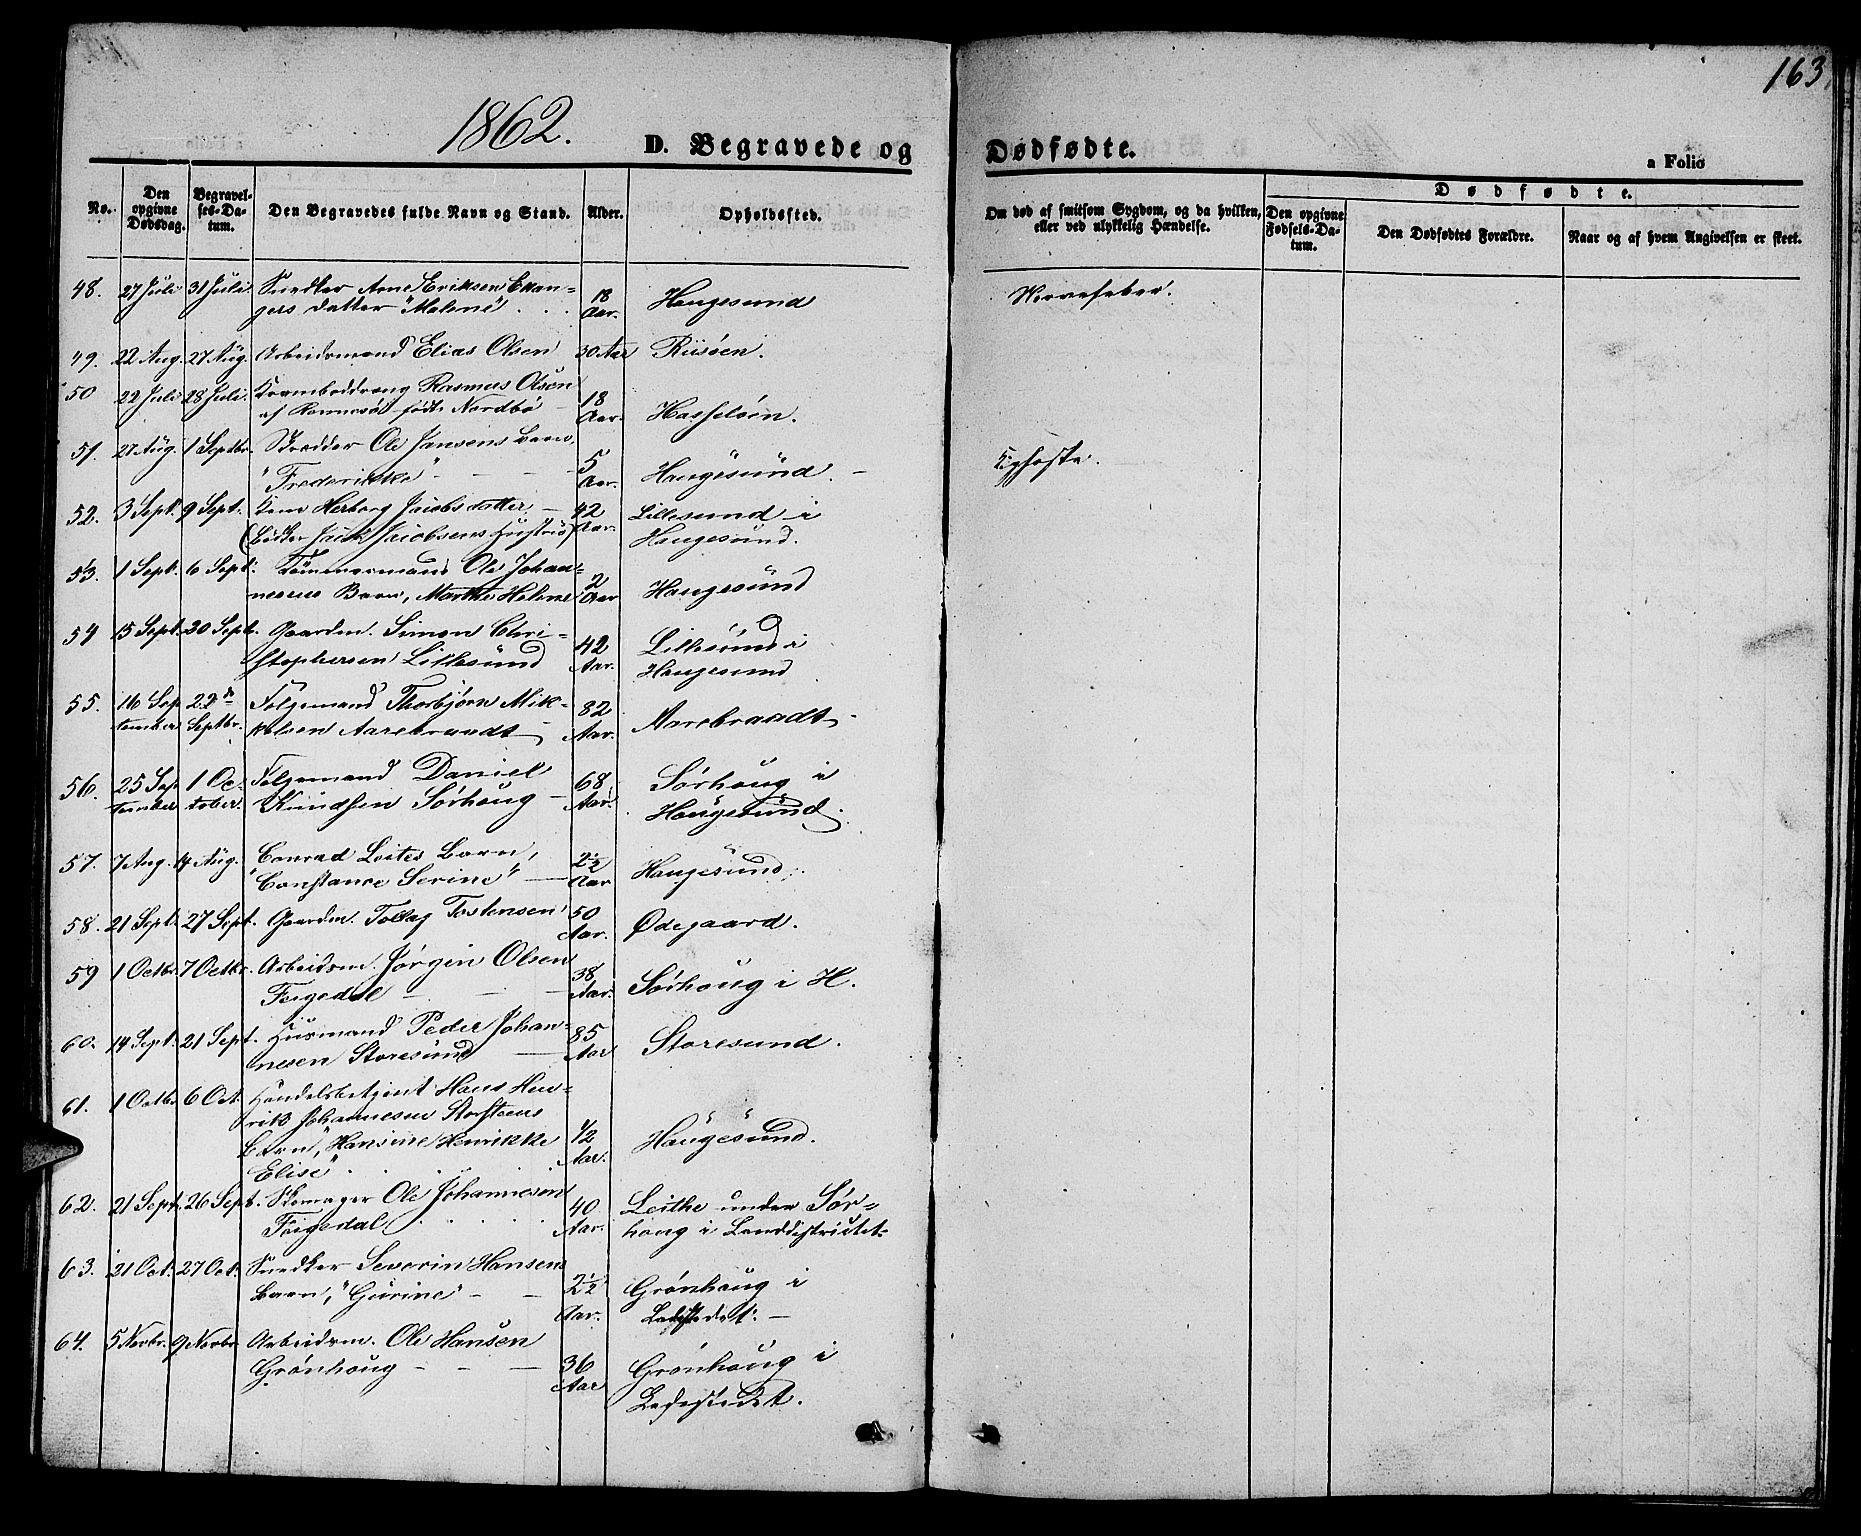 163
1862.
D. Begravede og Dødfødte.
a Folio
No.
Den opgivne Dødsdag.
Begravelses-Datum.
Den Begravedes fulde Navn og Stand.
Alder.
Opholdssted.
Om død af smitsom Sygdom, og da hvilken, eller ved ulykkelig Hændelse.
Dødfødte.
Den opgivne Fødsels-Datum.
Den Dødfødtes Forældre.
Naar og af hvem Angivelsen er skeet.
48. 27 Juli 31 Juli. Snedker Arne Eriksen Ekan-
gers datter "Malene" . . . 18 Aar. Haugesund Nervefeber.
49. 22 Aug. 27 Aug. Arbeidsmand Elias Olsen 30 Aar Riisøen.
50 22 Juli 28 Juli. Kramboddreng Rasmus Olsen
af født Nordbø 18 Aar. Hasseløen.
51. 27 Aug. 1 Septbr. Skrædder Ole Jansens Barn,
"Frederikke" 5 Aar. Haugesund. Kighoste.
52. 3 Sept. 9 Sept. Kone Herborg Jacobsdatter 42 Aar. Lillesund i
(Bødker Jacobsens Hustru) Haugesund.
53. 1 Sept. 6 Sept. Tømmermand Ole Johan-
nesens Barn, Marthe Helene 2 Aar Haugesund
54 15 Sept. 20 Sept. Gaardm. Simon Chri-
stophersen Lillesund 42 Aar. Lillesund i
Haugesund
55. 16 September 22de Septbr. Følgemand Thorbjørn Mik-
kelsen Aarebrandt 82 Aar. Aarebrandt
56. 25 September 1 October. Følgemand Daniel
Knudsen Sørhaug 68 Aar. Sørhaug i
Haugesund.
57. 7 Aug. 14 Aug. Conrad Loites Barn,
"Constance Serine" 2½ Aar Haugesund.
58. 21 Sept. 27 Sept. Gaardm. Tollag Tostensen 50 Aar. Ødegaard.
59 1 Octbr. 7 Octbr. Arbeidsm. Jørgin Olsen
Feigedal 38 Aar. Sørhaug i H.
60. 14 Sept. 21 Sept. Husmand Peder Johan-
nesen Storesund 85 Aar Storesund.
61. 1 Octbr. 6 Oct. Handelsbetjent Hans Hen-
rik Johannesen Storsteens
Barn, "Hansine Henrikke
Elise" ½ Aar. Haugesund.
62. 21 Sept. 26 Sept. Skomager Ole Johannesen
Feigedal 40 Aar. Leithe under Sør-
haug i Landdistrictet.
63. 21 Oct. 27 Oct. Snedker Severin Hansens
Barn, "Gurine" 2½ Aar. Grønhaug i
Ladestedet.
64. 5 Novbr. 9 Novbr. Arbeidsm. Ole Hansen
Grønhaug 36 Aar Grønhaug i
Ladestedet.